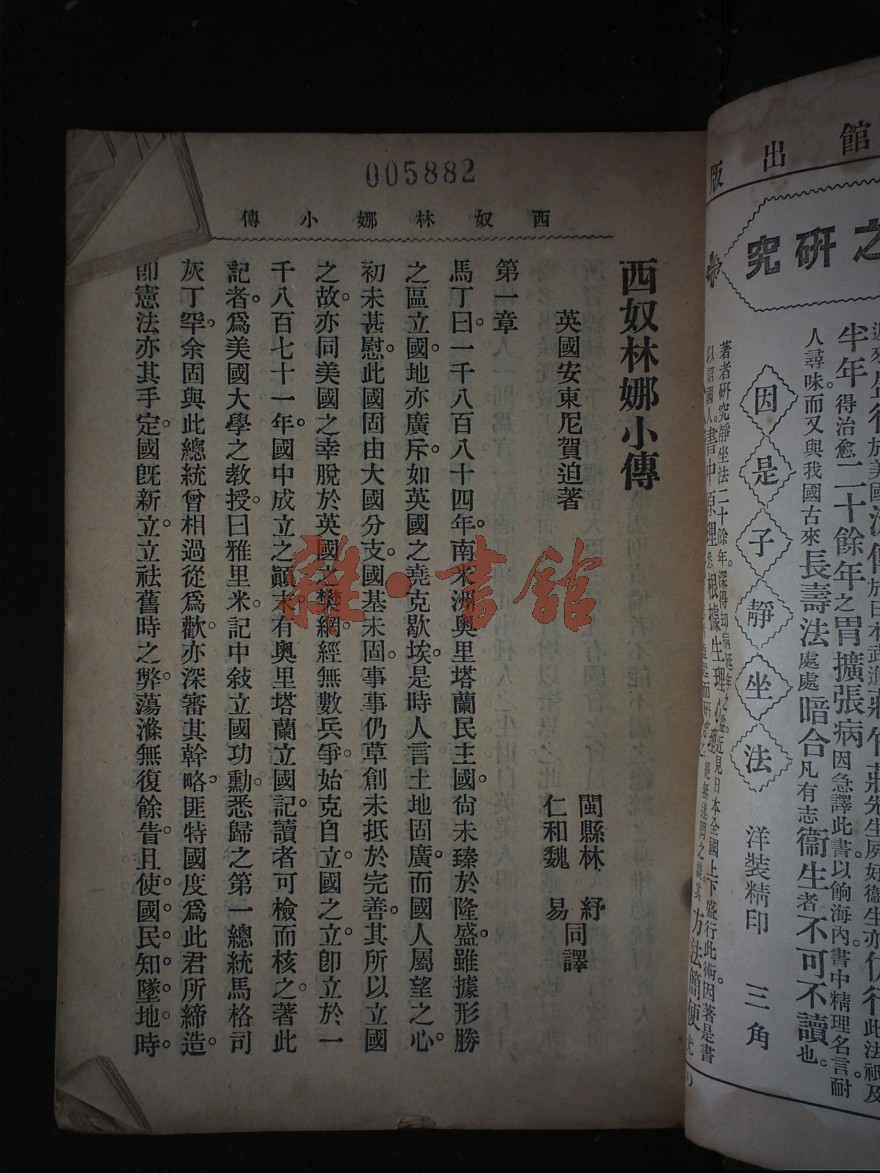 版出館
之研究
因是子靜坐法
洋裝精印 三角
半年得治愈二十餘年之胃擴張病因急譯此書以餉海內書中精理名言耐
人尋味而又與我國古來長壽法處處暗合凡有志衞生者不可不讀也。
005882
西奴林娜小傳
西奴林娜小傳
英國安東尼賀迫著
閩縣林紓
仁和魏易
同譯
第一章
馬丁曰。一千八百八十四年。南米洲奧里塔蘭民主國尙未臻於隆盛。雖據形勝
之區立國。地亦廣斥。如英國之堯克歇埃。是時人言土地固廣。而國人屬望之心。
初未甚慰。此國固由大國分支。國基未固。事事仍草創未抵於完善。其所以立國
之故。亦同美國之幸脫於英國之樊網。經無數兵爭。始克自立。國之立。卽立於一
千八百七十一年。國中成立之顚末。有奧里塔蘭立國記。讀者可檢而核之。著此
記者。爲美國大學之敎授。曰雅里米。記中敍立國功勳。悉歸之第一總統馬格司
灰丁罕。余固與此總統曾相過從爲歡。亦深審其幹略。匪特國度爲此君所締造。
卽憲法亦其手定。國旣新立。立祛舊時之弊。蕩滌無復餘眚。且使國民知墜地時
雜·書館